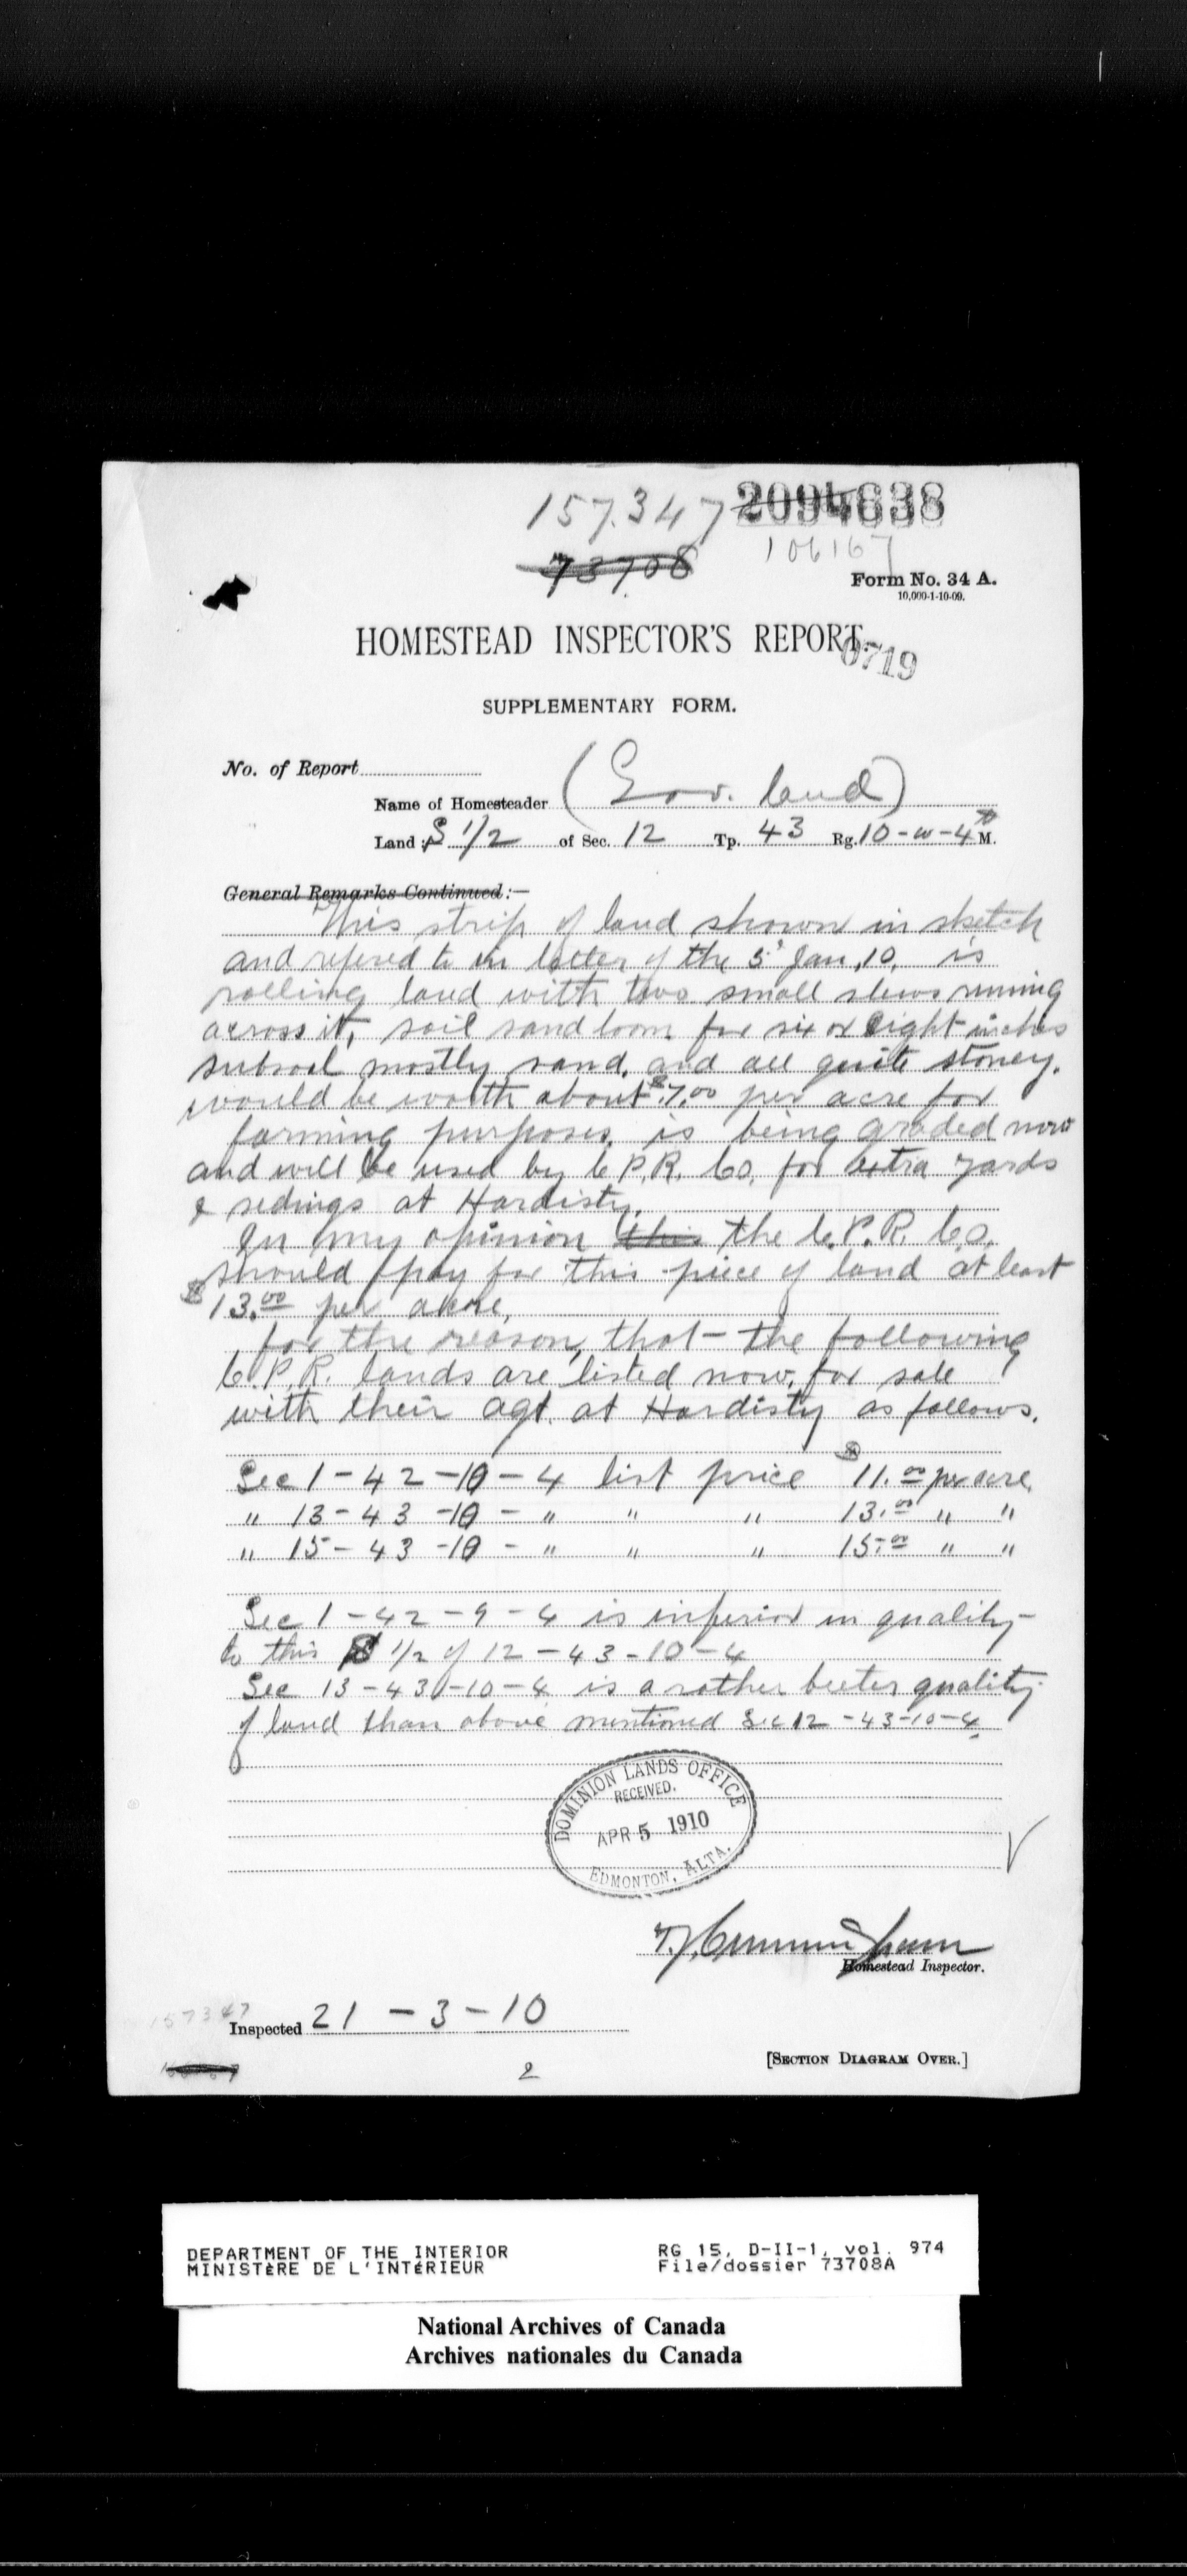 157.347 2094638
73708 106167
Form No. 34 A.
10,000-1-10-09.
HOMESTEAD INSPECTOR'S REPORT.
0719
SUPPLEMENTARY FORM.
No. of Report
Name of Homesteader (Gov. land)
Land: S 1/2 of Sec. 12 Tp. 43 Rg. 10-w-4th M.
General Remarks Continued:—
This strip of land shown in sketch
and refered to in letter of the 5' Jan, 10, is
rolling land with two small slews runing
across it, soil sand loom for six or eight inches
subsoil mostly sand. and all quite stoney.
would be worth about $7.00 per acre for
farming purposes. is being graded now
and will be used by C.P.R. Co. for extra yards
& sedings at Hardisty.
In my opinion this the C.P.R. Co.
should pay for this piece of land at least
$13.00 per acre,
for the reason, that - the following
C.P.R. lands are listed now, for sale
with their agt. at Hardisty as follows.
Sec 1 - 42 - 10 - 4 list price $11.00 per acre.
" 13 - 43 - 10 - " " " 13.00 " "
" 15 - 43 - 10 - " " " 15.00 " "
Sec 1 - 42 - 9 - 4 is inferior in quality -
to this S 1/2 of 12 - 43 - 10 - 4
Sec 13 - 43 - 10 - 4 is a rather beeter quality
of land than above mentioned Sec 12 - 43 - 10 - 4.
DOMINION LANDS OFFICE
RECEIVED.
APR 5 1910
EDMONTON, ALTA.
T.J. Cunningham
Homestead Inspector.
157347
Inspected 21 - 3 - 10
[SECTION DIAGRAM OVER.]
2
DEPARTMENT OF THE INTERIOR RG 15, D-II-1, vol. 974
MINISTÈRE DE L'INTÉRIEUR File/dossier 73708A
National Archives of Canada
Archives nationales du Canada